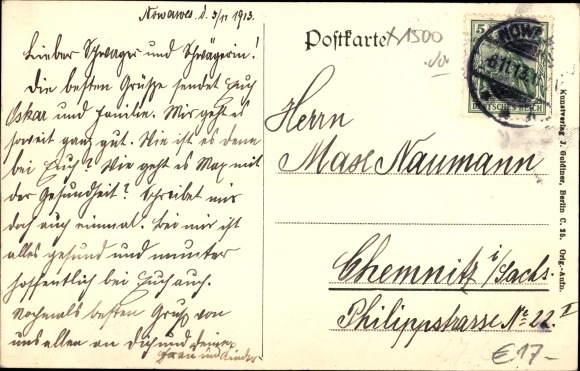 Nowawes d. 3/11 1913.
Lieber Schwager und Schwägerin!
Die besten Grüße sendet Euch
Oskar und Familie. Mir geht es
soweit ganz gut. Wie ist es denn
bei Euch? Wie geht es Max mit
der Gesundheit? Schreibet mir
doch auch einmal. Bei mir ist
alles gesund und munter
hoffentlich bei Euch auch.
Nochmals besten Gruß von
uns allen an Dich und deine
Frau und Kinder
Postkarte
X1500
5
NOWA
6.11.13.
DEUTSCHES REICH
Herrn
Max Naumann
Chemnitz i/Sachs.
Philippstrasse No 22. I
Kunstverlag J. Goldiner, Berlin C. 25. Orig.-Aufn.
€17-